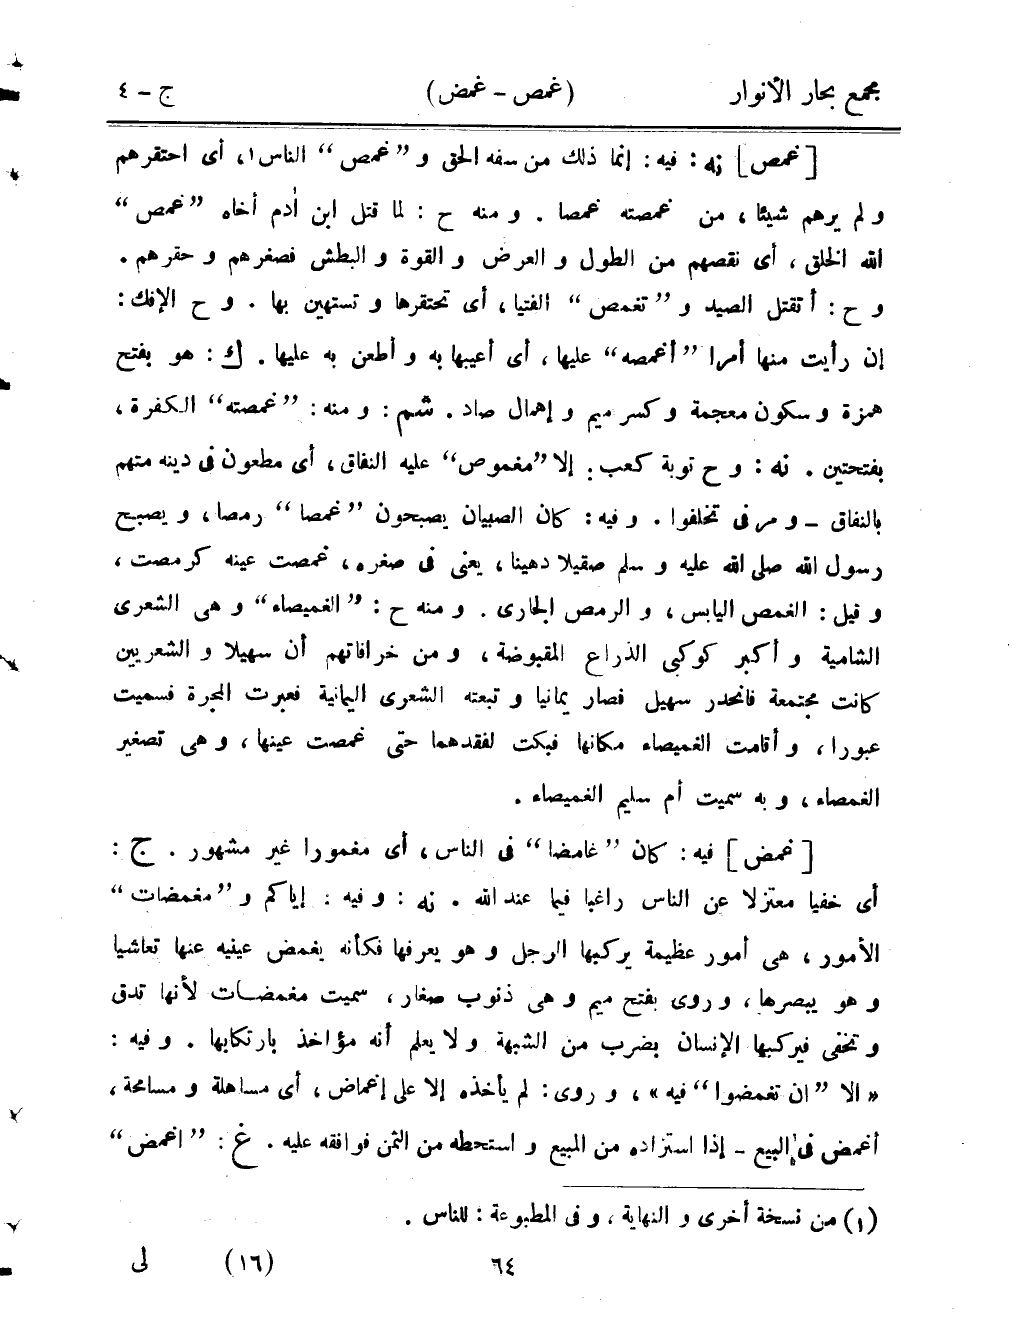 مجمع بحار الأنوار (غمص - غمض) ج - ٤
[غمص] نه: فيه: إنما ذلك من سفه الحق و ”غمص“ الناس١، أى احتقرهم
و لم يرهم شيئا، من غمصته غمصا . و منه ح : لما قتل ابن أدم أخاه ”غمص“
الله الخلق، أى نقصهم من الطول و العرض و القوة و البطش فصغرهم و حقرهم .
و ح : أتقتل الصيد و ”تغمص“ الفتيا، أى تحتقرها و تستهين بها . و ح الإفك:
إن رأيت منها أمرا ”أغمصه“ عليها، أى أعيبها به و أطعن به عليها . ك: هو بفتح
همزة و سكون معجمة و كسر ميم و إهمال صاد . شم: و منه: ”غمصته“ الكفرة،
بفتحتين . نه: و ح توبة كعب: إلا ”مغموص“ عليه النفاق، أى مطعون فى دينه متهم
بالنفاق - و مر فى تخلفوا . و فيه: كان الصبيان يصبحون ”غمصا“ رمصا، و يصبح
رسول الله صلى الله عليه و سلم صقيلا دهينا، يعنى فى صغره، غمصت عينه كرمصت،
و قيل: الغمص اليابس، و الرمص الجارى . و منه ح: ”الغميصاء“ و هى الشعرى
الشامية و أكبر كوكبى الذراع المقبوضة، و من خرافاتهم أن سهيلا و الشعريين
كانت مجتمعة فانحدر سهيل فصار يمانيا و تبعته الشعرى اليمانية فعبرت المجرة فسميت
عبورا، و أقامت الغميصاء مكانها فبكت لفقدهما حتى غمصت عينها، و هى تصغير
الغمصاء، و به سميت أم سليم الغميصاء .
[غمض] فيه: كان ”غامضا“ فى الناس، أى مغمورا غير مشهور . ج:
أى خفيا معتزلا عن الناس راغبا فيما عند الله . نه: و فيه: إياكم و ”مغمضات“
الأمور، هى أمور عظيمة يركبها الرجل و هو يعرفها فكأنه يغمض عينيه عنها تعاشيا
و هو يبصرها، و روى بفتح ميم و هى ذنوب صغار، سميت مغمضات لأنها تدق
و تخفى فيركبها الإنسان بضرب من الشبهة و لا يعلم أنه مؤاخذ بارتكابها . و فيه:
«الا ”ان تغمضوا“ فيه»، و روى: لم يأخذه إلا على إغماض، أى مساهلة و مسامحة،
أغمض فى البيع - إذا استزاده من المبيع و استحطه من الثمن فوافقه عليه . غ: ”اغمض“
(١) من نسخة أخرى و النهاية، و فى المطبوعة: للناس .
٦٤ (١٦) لى